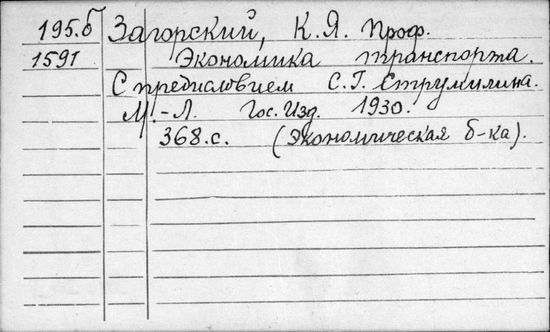 195.б Загорский, К. Я. Проф.
1591 Экономика транспорта.
С предисловием С. Г. Струмилина.
М.-Л. Гос. Изд. 1930.
368.с. (Экономическая б-ка).